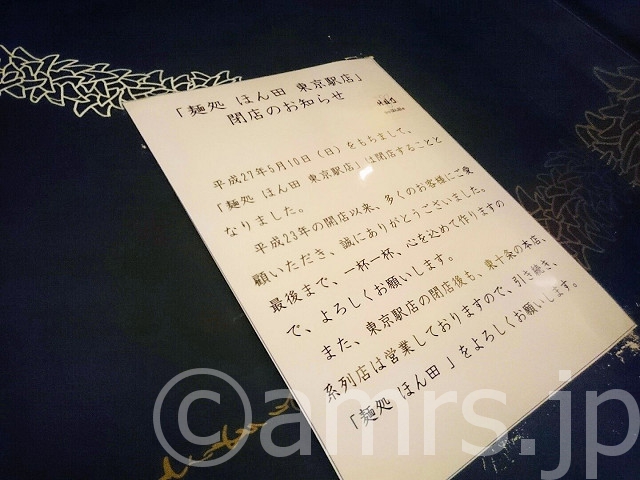 「麺処 ほん田 東京駅店」
閉店のお知らせ
平成27年5月10日（日）をもちまして、
「麺処 ほん田 東京駅店」は閉店することと
なりました。
平成23年の開店以来、多くのお客様にご愛
顧いただき、誠にありがとうございました。
最後まで、一杯一杯、心を込めて作りますの
で、よろしくお願いします。
また、東京駅店の閉店後も、東十条の本店、
系列店は営業しておりますので、引き続き、
「麺処 ほん田 」をよろしくお願いします。
©amrs.jp